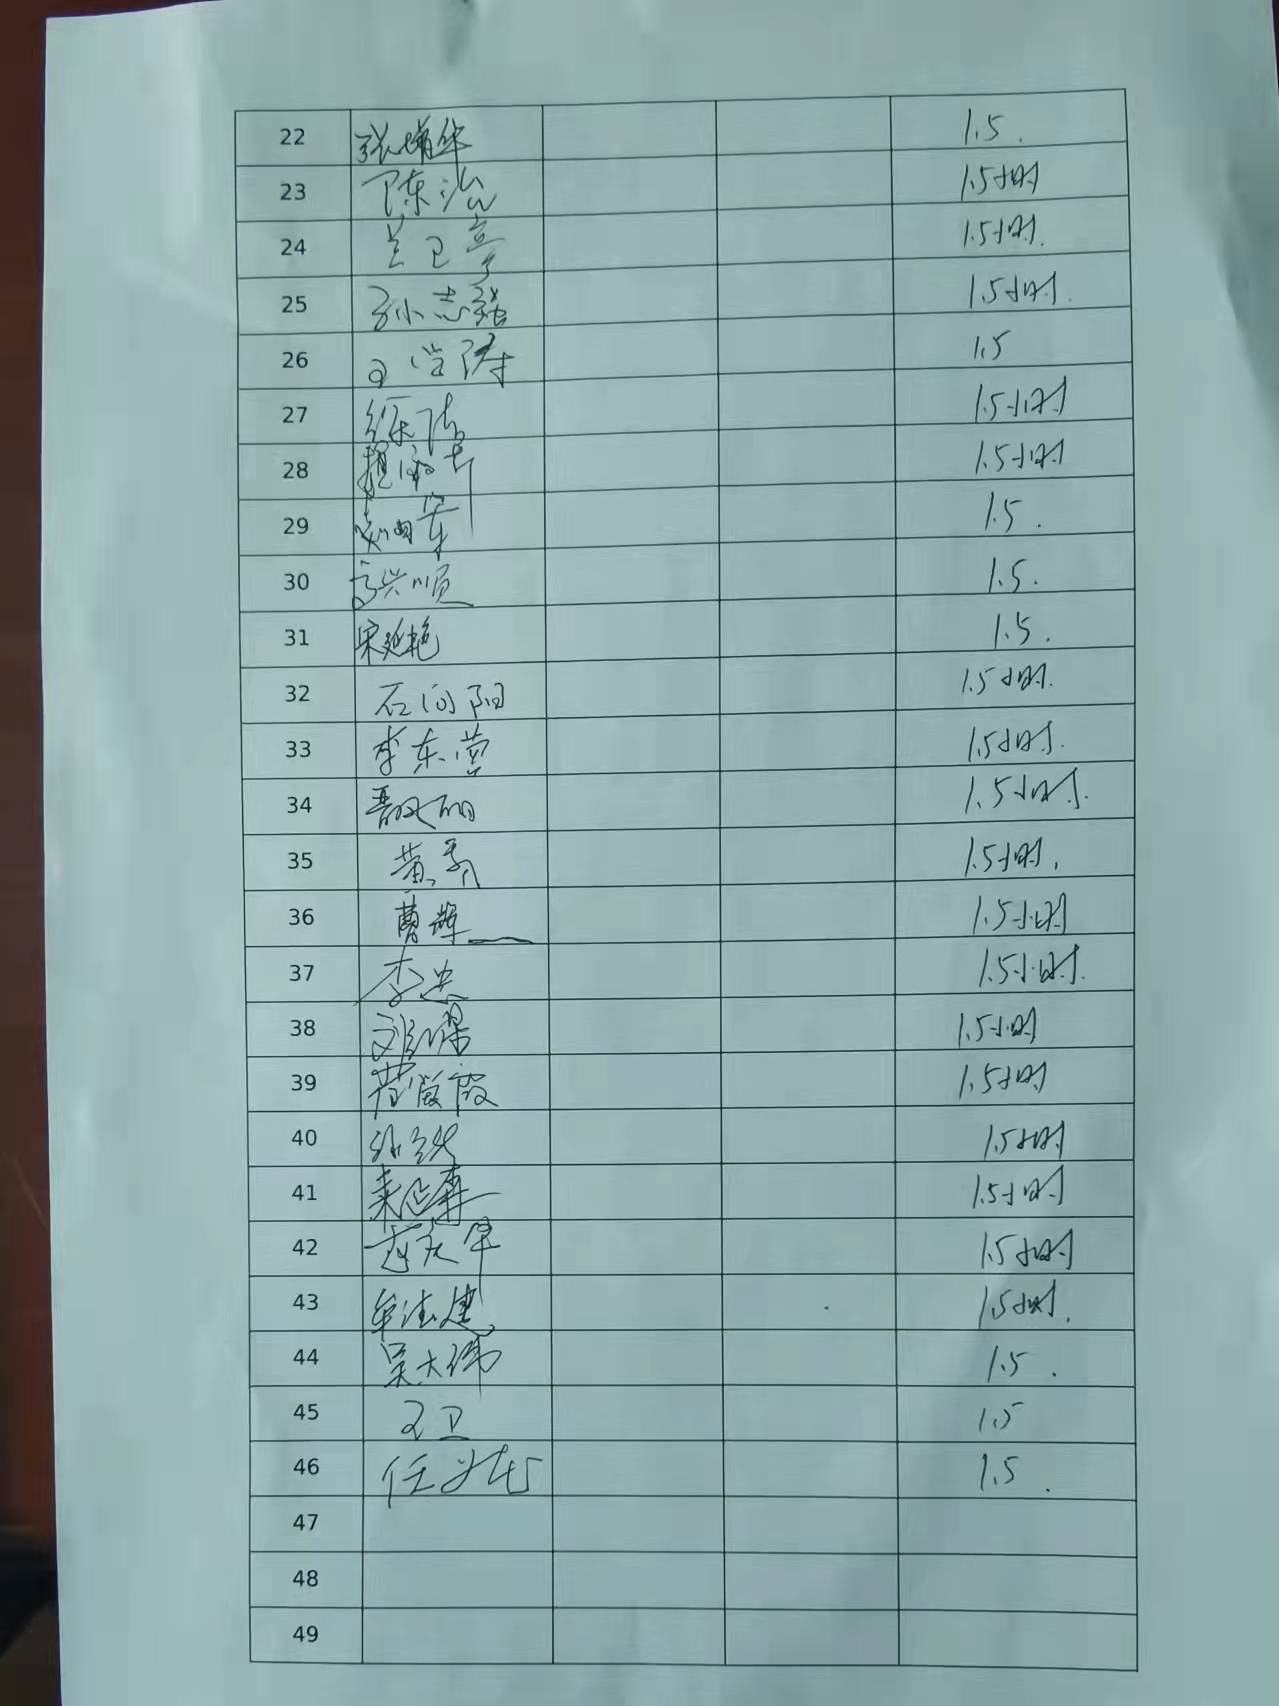 22 1.5.
23 陈泓 1.5小时
24 兰卫亭 1.5小时.
25 孙志强 1.5小时.
26 1.5
27 徐 1.5小时
28 1.5小时
29 军 1.5.
30 高兴顺 1.5.
31 宋延艳 1.5.
32 石向阳 1.5小时.
33 李东营 1.5小时.
34 1.5小时.
35 黄秀 1.5小时.
36 曹辉 1.5小时
37 李忠 1.5小时.
38 刘 1.5小时
39 霞 1.5小时
40 1.5小时
41 1.5小时
42 赵庆军 1.5小时
43 牟洪建 1.5小时.
44 吴大伟 1.5.
45 王卫 1.5
46 任 1.5.
47
48
49